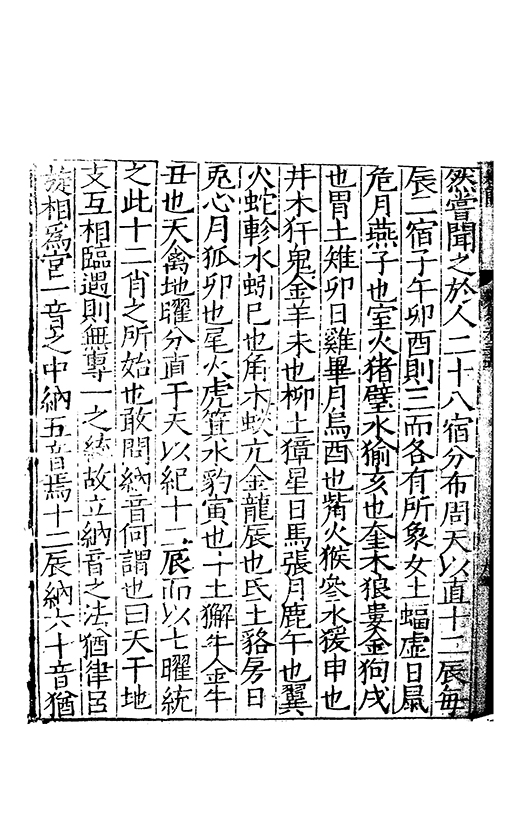 然嘗聞之於人二十八宿分布周天以直十二辰每
辰二宿子午卯酉則三而各有所象女土蝠虛日鼠
危月燕子也室火猪壁水㺄亥也奎木狼婁金狗戌
也胃土雉卯日雞畢月烏酉也觜火猴參水猨申也
井木犴鬼金羊未也柳土獐星日馬張月鹿午也翼
火蛇軫水蚓巳也角木蛟亢金龍辰也氐土貉房日
兎心月狐卯也尾火虎箕水豹寅也斗土獬牛金牛
丑也天禽地曜分直于天以紀十二辰而以七曜統
之此十二肖之所始也敢問納音何謂也曰天干地
支互相臨遇則無專一之統故立納音之法猶律呂
旋相爲宮一音之中納五音焉十二辰納六十音猶